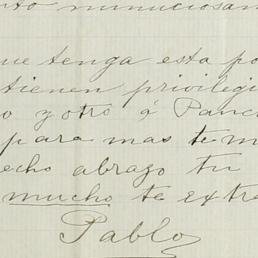 nto minuciosam
ue tenga esta po
tienen privilegi
o y otro á Panc
para mas te m
echo abrazo tu
mucho te extra
Pablo